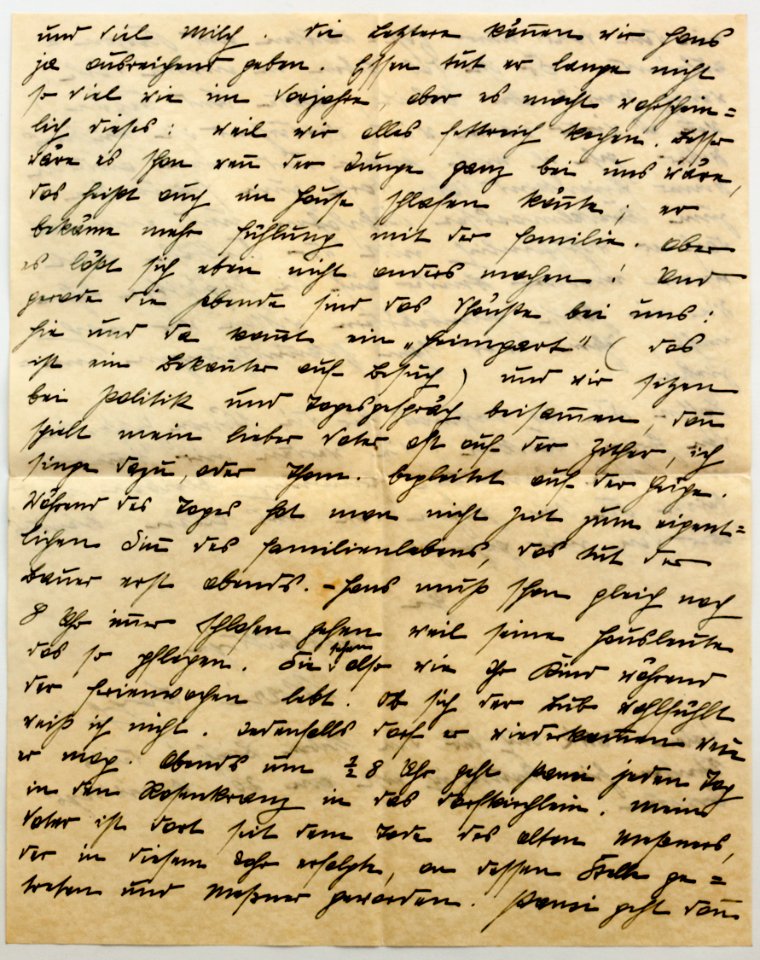 und viel Milch. Die letztere können wir Hans
ja ausreichend geben. Essen tut er lange nicht
so viel wie im Vorjahre, aber es macht wahrschein=
lich dieses: weil wir alles fettreich kochen. Besser
wäre es schon wenn der Junge ganz bei uns wäre,
das heißt auch im Hause schlafen könnte; er
bekäme mehr Fühlung mit der Familie. Aber
es läßt sich eben nicht anders machen! Und
gerade die Abende sind das Schönste bei uns:
hie und da kommt ein „Heimgart" (das
ist ein Bekannter auf Besuch) und wir sitzen
bei Politik und Tagesgespräch beisammen, dann
spielt mein lieber Vater oft auf der Zither, ich
singe dazu, oder Thom. begleitet auf der Geige.
Während des Tages hat man nicht Zeit zum eigent=
lichen Sinn des Familienlebens, das tut der
Bauer erst abends. - Hans muß schon gleich nach
8 Uhr immer schlafen gehen weil seine Hausleute
das so pflegen. Sie sehen also wie Ihr Kind während
der Ferienwochen lebt. Ob sich der Bub wohlfühlt
weiß ich nicht. Jedenfalls darf er wiederkommen wenn
er mag. Abends um ½ 8 Uhr geht jeden Tag
in den Rosenkranz in das Dorfkirchlein. Mein
Vater ist dort seit dem Tode des alten Meßners,
der in diesem Jahr erfolgte, an dessen Stelle ge=
treten und Meßner geworden. geht dann